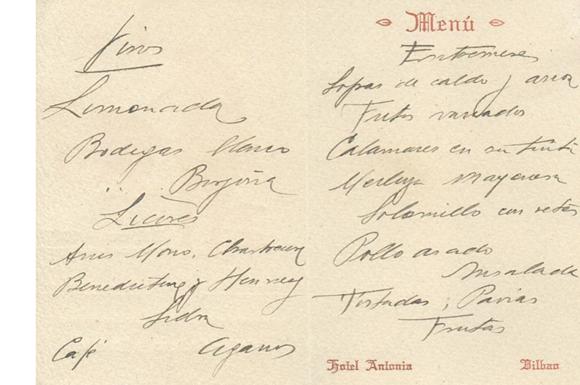 Vinos
Limonada
Bodegas Blanco
" Borgoña
Licores
Anis Mono, Chartreux
Benedictino y Henney
Sidra
Café
Menú
Entremeses
Sopas de caldo y arroz
Fritos variados
Calamares en su tinta
Merluza mayonesa
Solomillo con setas
Pollo asado
Ensalada
Tostadas y Pavias
Frutas
Hotel Antonia Bilbao